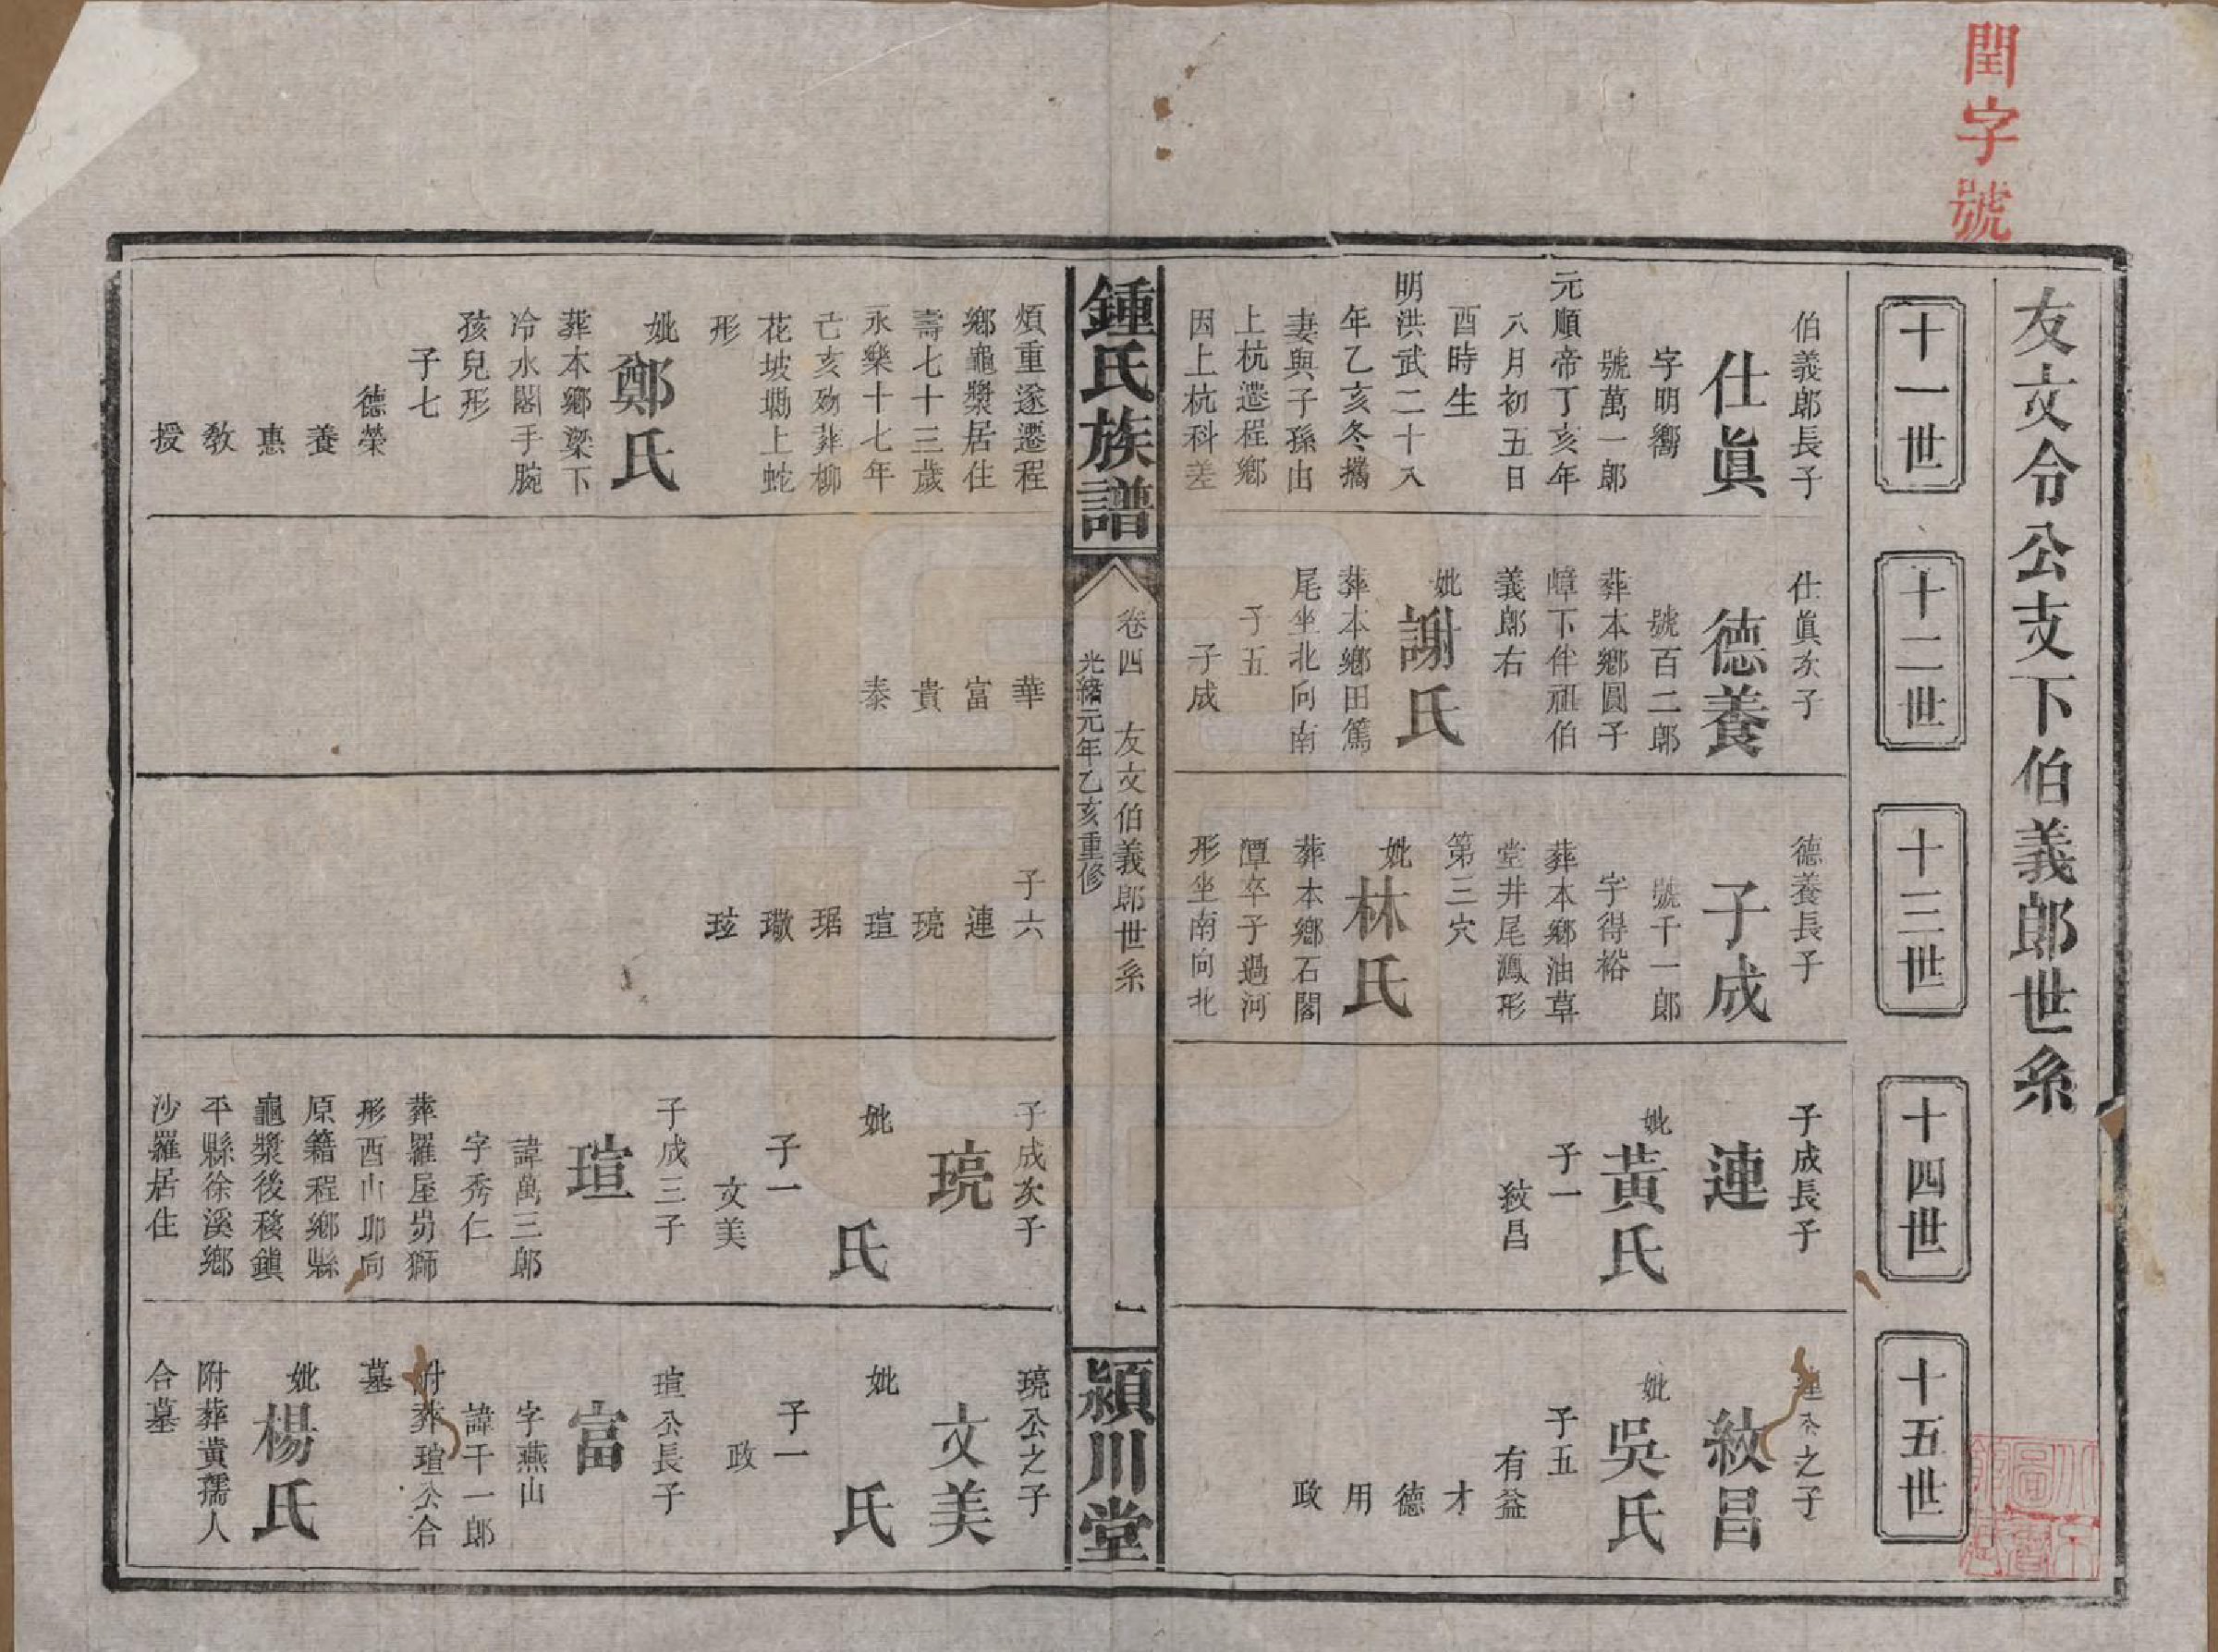 閏字號
友文令公支下伯義郎世系
十一世
十二世
十三世
十四世
十五世
伯義郎長子
仕眞
字明嚮
號萬一郎
元順帝丁亥年
八月初五日
酉時生
明洪武二十八
年乙亥冬攜
妻與子孫由
上杭遷程鄉
因上杭科差
仕眞次子
德養
號百二郎
葬本鄉圓子
嶂下伴祖伯
義郎右
妣謝氏
葬本鄉田篤
尾坐北向南
子五
子成
德養長子
子成
號千一郎
字得裕
葬本鄉油草
堂井尾鳳形
第三穴
妣林氏
葬本鄉石閣
潭卒子過河
形坐南向北
子成長子
連
妣黃氏
子一
紋昌
連公之子
紋昌
妣吳氏
子五
有益
才
德
用
政
鍾氏族譜
卷四 友文伯義郎世系
光緒元年乙亥重修
一
潁川堂
煩重遂遷程
鄉龜漿居住
壽七十三歲
永樂十七年
亡亥歿葬柳
花坡坜上蛇
形
妣鄭氏
葬本鄉梁下
冷水閣手腕
孩兒形
子七
德榮
養
惠
教
授
華
富
貴
泰
子六
連
琉
瑄
琚
璥
玹
子成次子
琉
妣 氏
子一
文美
子成三子
瑄
諱萬三郎
字秀仁
葬羅屋岃獅
形酉山卯向
原籍程鄉縣
龜漿後移鎭
平縣徐溪鄉
沙羅居住
琉公之子
文美
妣 氏
子一
政
瑄公長子
富
字燕山
諱千一郎
附葬瑄公合
墓
妣楊氏
附葬黃孺人
合墓